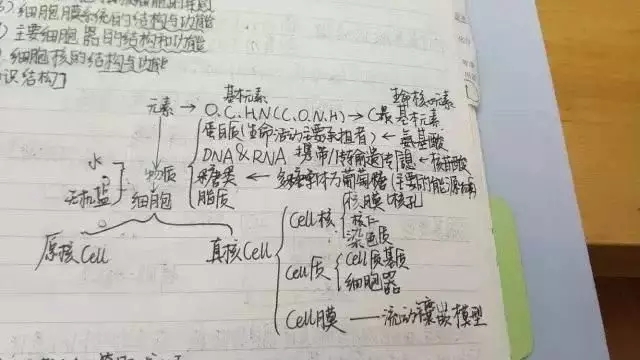 细胞膜系统的结构与功能
主要细胞器的结构和功能
细胞核的结构与功能
识结构]
基本元素
元素 → O.C.H.N(C.O.N.H) → C最基本元素
蛋白质(生命活动主要承担者) ← 氨基酸
DNA&RNA 携带/传输遗传信息 ← 核苷酸
水
物质
糖类 ← 多糖单体为葡萄糖(主要的能源
无机盐
细胞
脂质
核膜 核孔
Cell核
核仁
染色质
原核Cell
真核Cell
Cell质
Cell质基质
细胞器
Cell膜 — 流动镶嵌模型